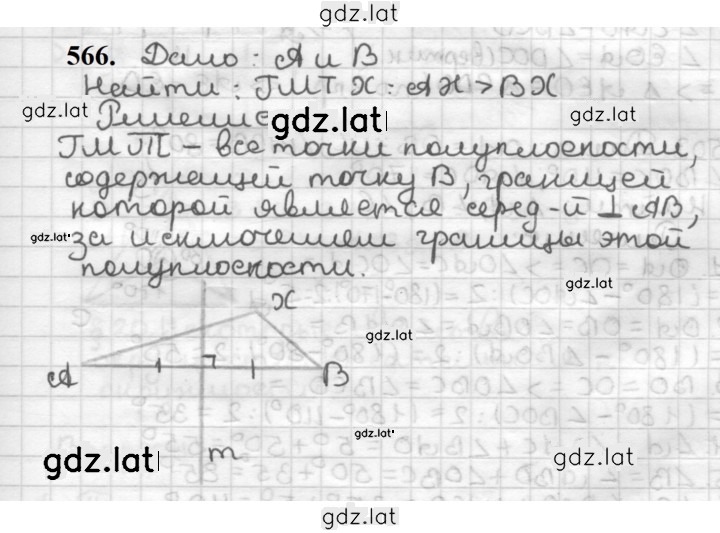 gdz.lat
566. Дано: A и B
Найти: ГМТ X: AX > BX
gdz.lat Решение gdz.lat gdz.lat
ГМТ – все точки полуплоскости,
содержащей точку B, границей
которой является серед-й ⊥ AB,
gdz.lat за исключением границы этой
полуплоскости.
gdz.lat
X
gdz.lat
A B
gdz.lat
m
gdz.lat gdz.lat
gdz.lat